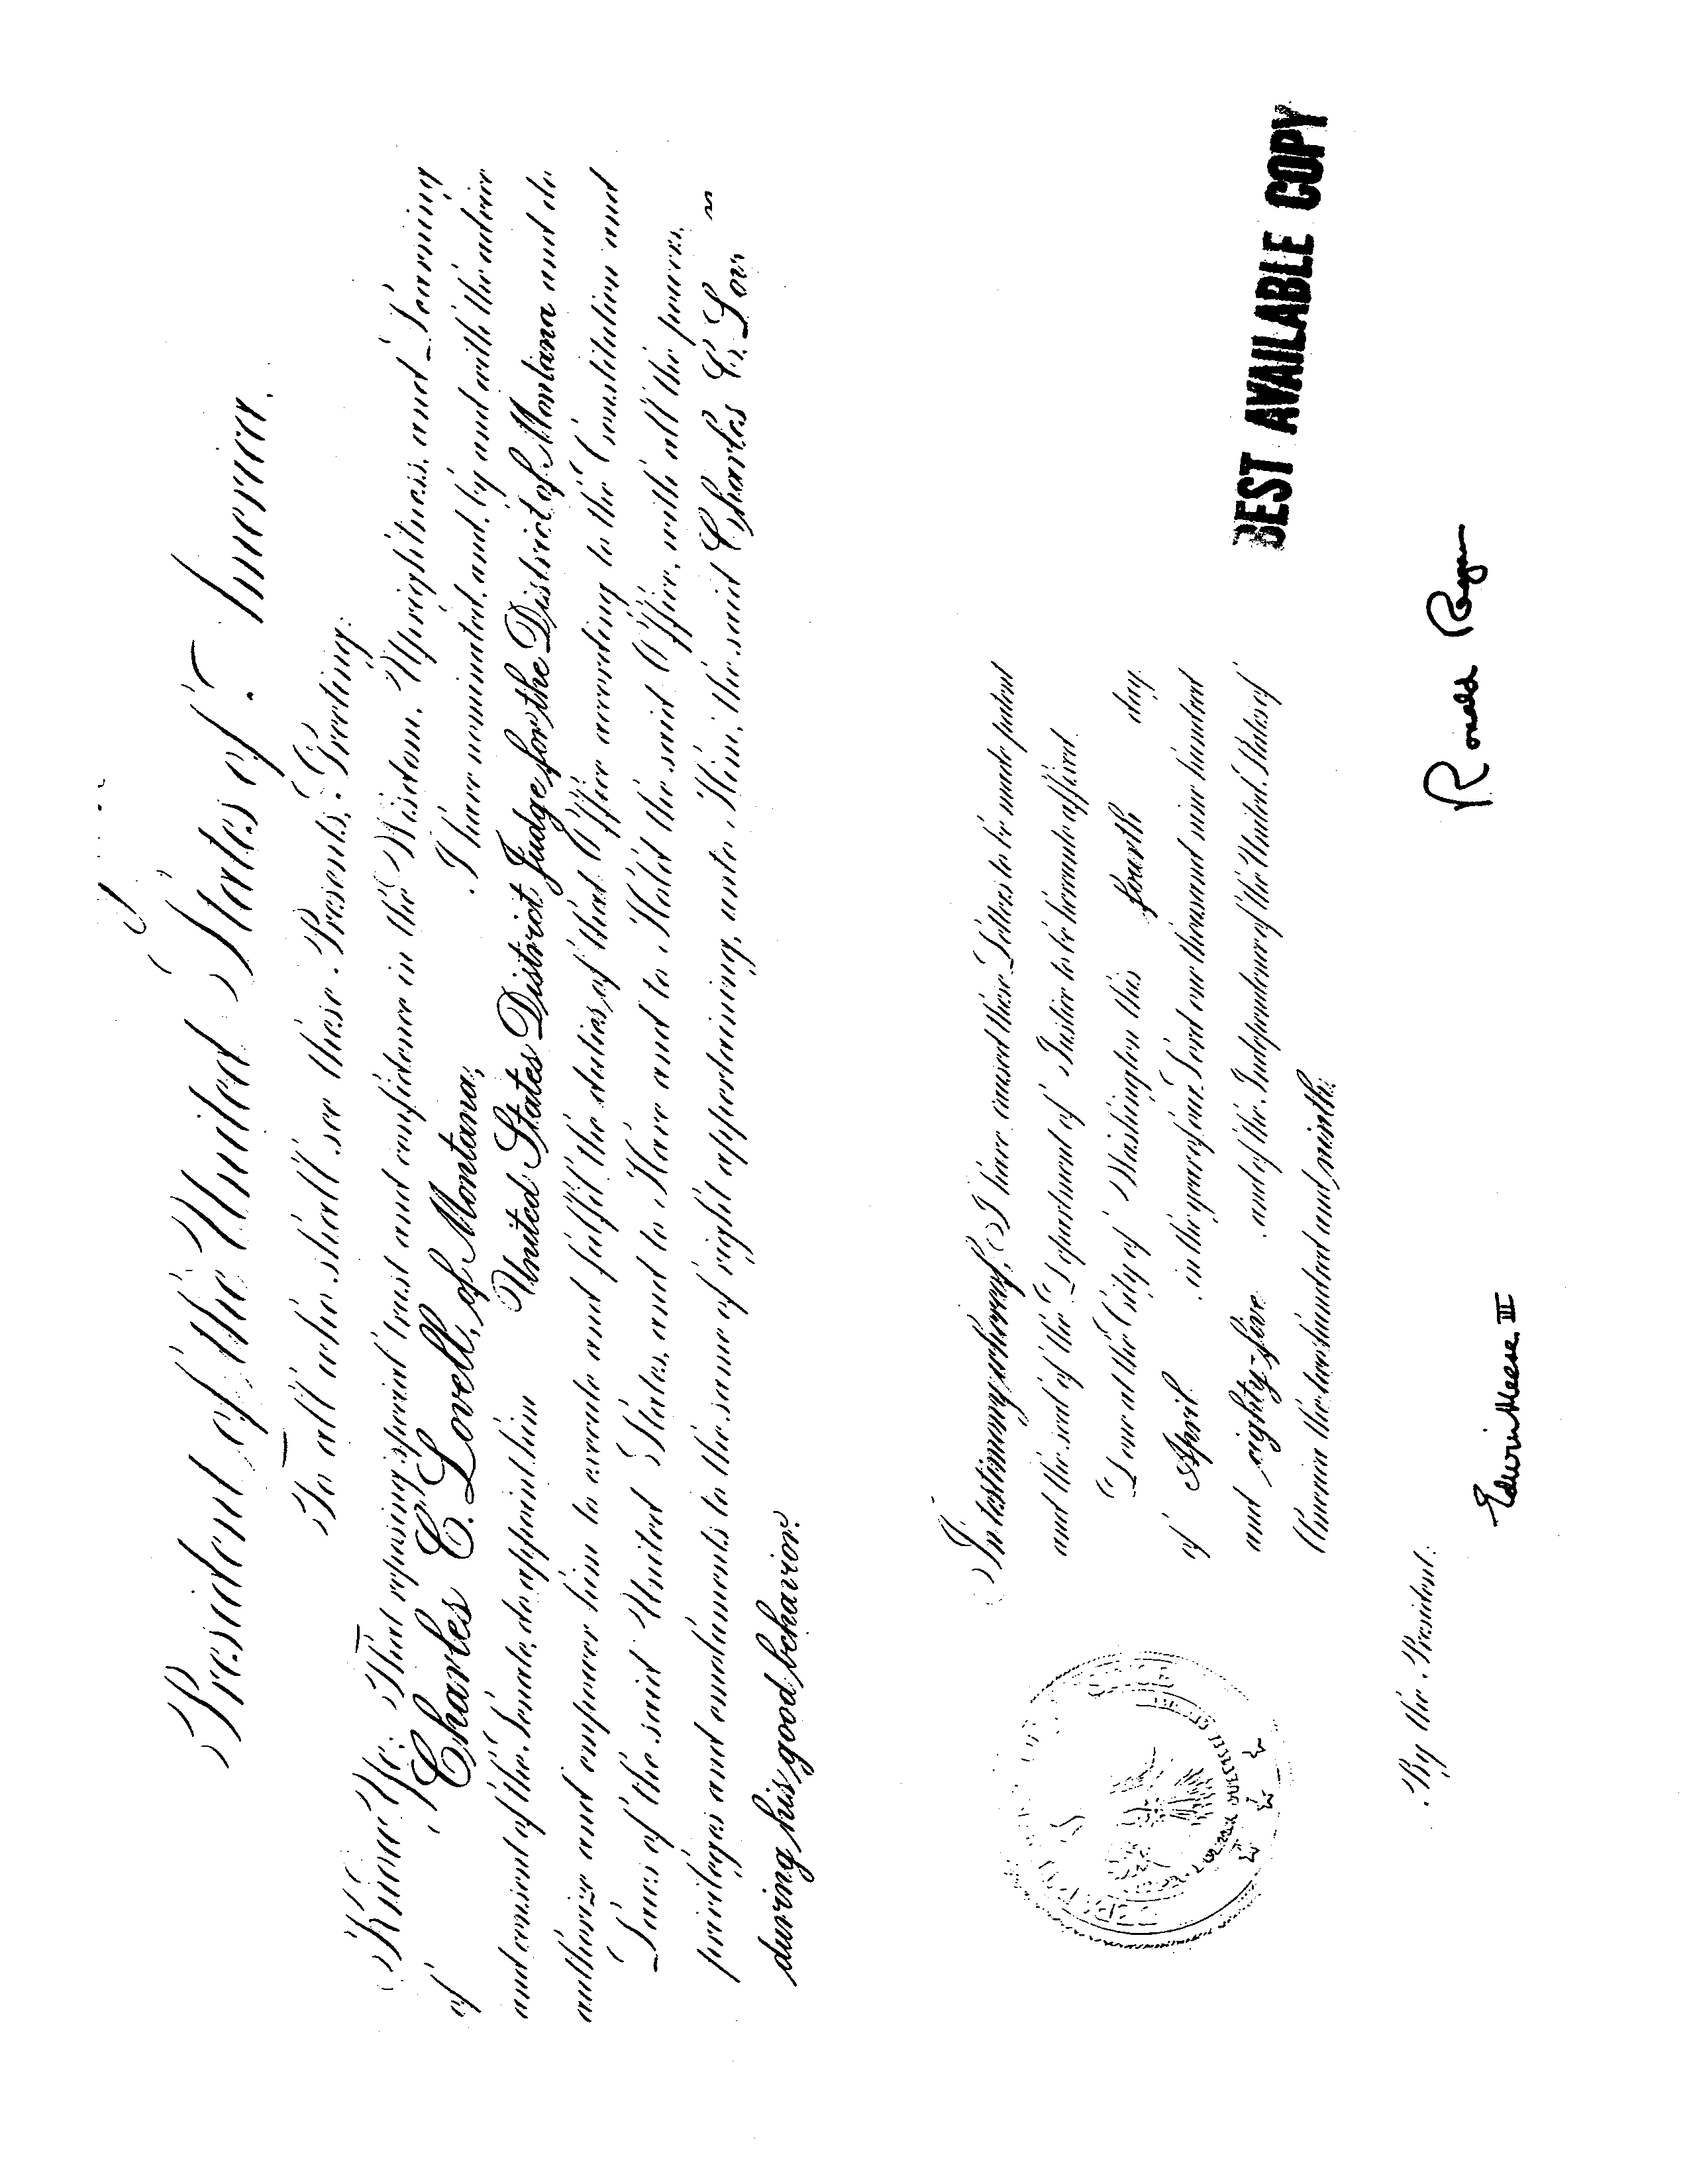 President of the United States of America.
To all who shall see these Presents, Greeting:
Know Ye: That reposing special trust and confidence in the Wisdom, Uprightness, and Learning
of Charles C. Lovell, of Montana, I have nominated, and, by and with the advice
and consent of the Senate, do appoint him United States District Judge for the District of Montana and do
authorize and empower him to execute and fulfil the duties of that Office according to the Constitution and
Laws of the said United States, and to Have and to Hold the said Office, with all the powers,
privileges and emoluments to the same of right appertaining, unto Him, the said Charles C. Lov
during his good behavior.
In testimony whereof, I have caused these Letters to be made patent
and the seal of the Department of Justice to be hereunto affixed.
Done at the City of Washington this fourth day
of April in the year of our Lord one thousand nine hundred
and eighty-five and of the Independence of the United States of
America the two hundred and ninth.
BEST AVAILABLE COPY
Ronald Reagan
By the President:
Edwin Meese III